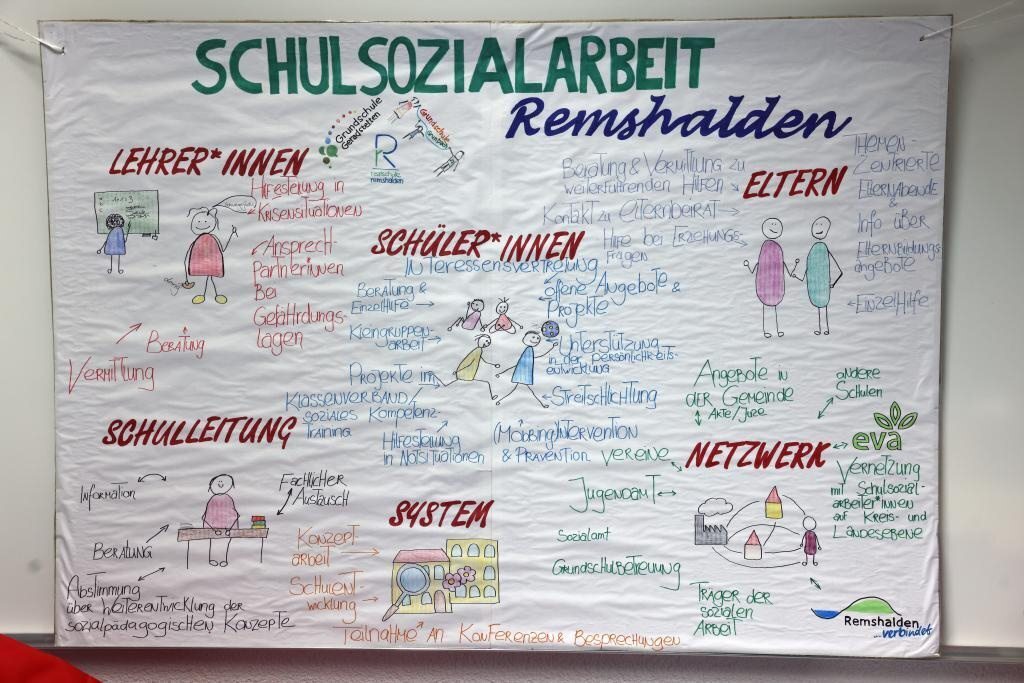 SCHULSOZIALARBEIT
Remshalden
Grundschule
Geradstetten
Grundschule
R
realschule
remshalden
LEHRER*INNEN
Hilfestellung in
Krisensituationen
Ansprech-
Partnerinnen
Bei
Gefährdungs-
lagen
Beratung
Vermittlung
SCHÜLER*INNEN
Interessensvertretung
Beratung &
Einzelhilfe
Kleingruppen-
arbeit
Projekte im
Klassenverband/
soziales Kompetenz-
training
Hilfestellung
in Notsituationen
offene Angebote &
Projekte
Unterstützung
in der persönlichkeits-
entwicklung
Streitschlichtung
(Mobbing)Intervention
& Prävention
ELTERN
Beratung & Vermittlung zu
weiterführenden Hilfen
Kontakt zu Elternbeirat
Hilfe bei Erziehungs-
fragen
Themen-
zentrierte
Elternabende
&
Info über
Elternbildungs-
angebote
Einzelhilfe
SCHULLEITUNG
Information
Fachlicher
Austausch
Beratung
Abstimmung
über Weiterentwicklung der
sozialpädagogischen Konzepte
SYSTEM
Konzept-
arbeit
Schulent-
wicklung
Teilnahme an Konferenzen & Besprechungen
NETZWERK
Angebote in
der Gemeinde
Akte/Jure
andere
Schulen
eva
Vereine
Jugendamt
Sozialamt
Grundschulbetreuung
Träger der
sozialen
Arbeit
Vernetzung
mit Schulsozial-
arbeiter*innen
auf Kreis- und
Landesebene
Remshalden
...verbindet